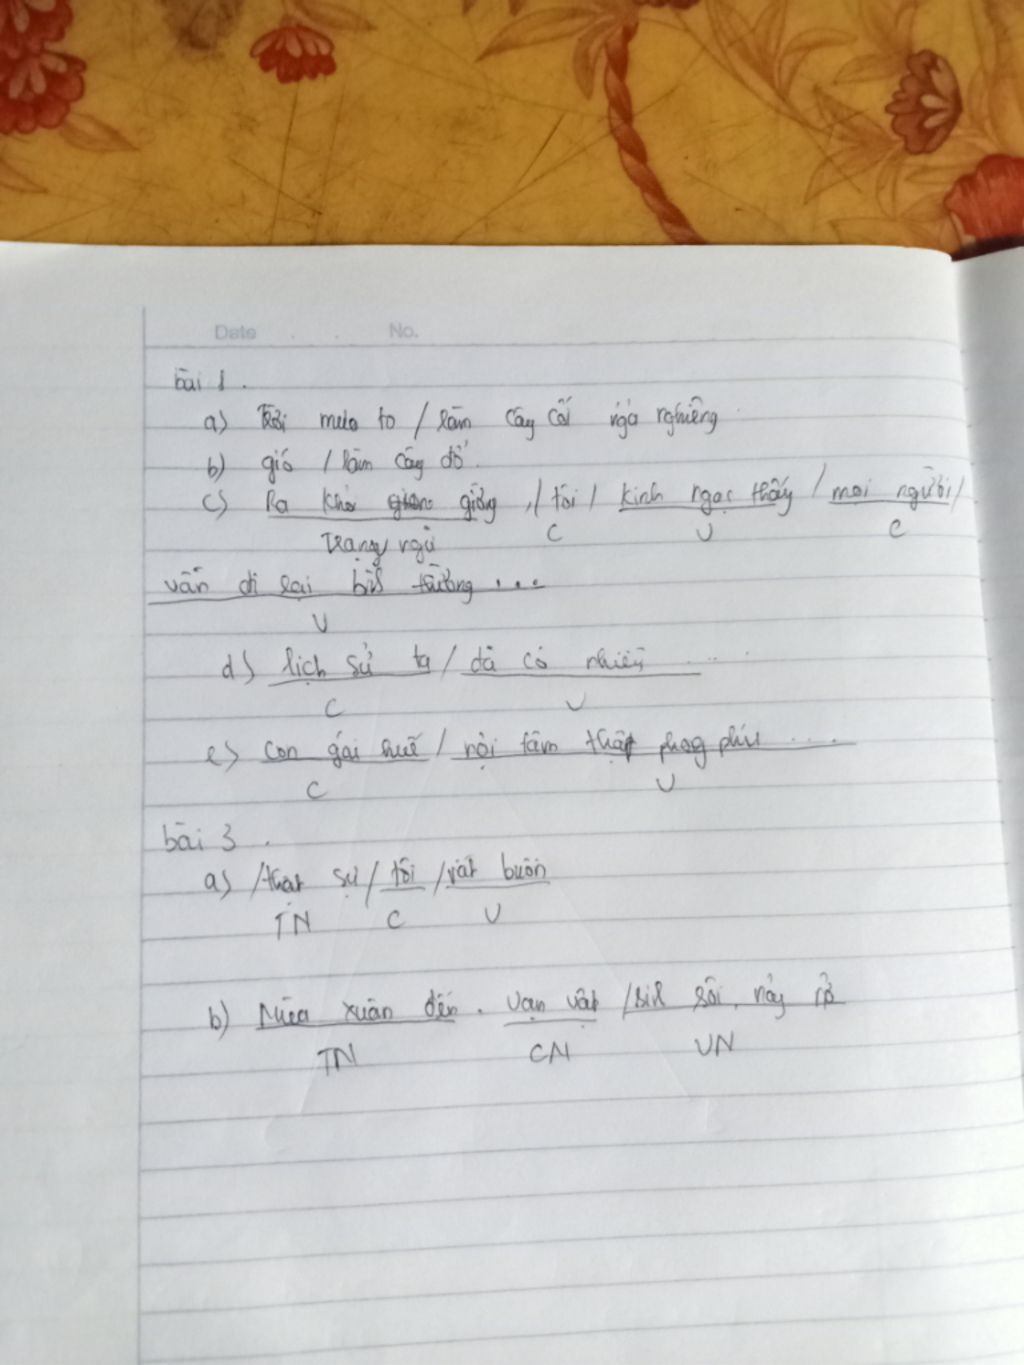 Date No.
bài 1.
a) Trời mưa to / làm cây cối ngả nghiêng
b) gió / làm cây đổ.
c) Ra khỏi giếng, / tôi / kinh ngạc thấy / mọi người /
C V C
Trạng ngữ
vẫn đi lại bth thường ...
V
d) lịch sử ta / đã có nhiều ...
C V
e) con gái huế / nội tâm thật phog phú ....
C V
bài 3.
a) / thật sự / tôi / rất buồn
TN C V
b) Mùa xuân đến. vạn vật / sih sôi, nảy nở
TN CN VN